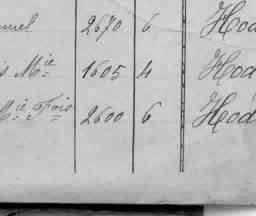 nuel 2670 6 Hod
is Mie 1605 4 Hod
Mie Fois 2600 6 Hod